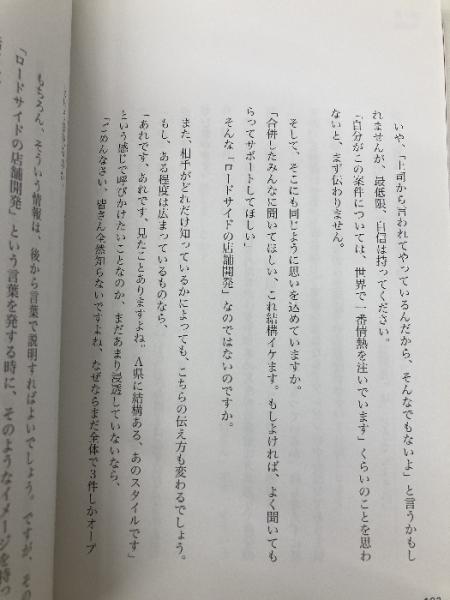 いや、「上司から言われてやっているんだから、そんなでもないよ」と言うかもし
れませんが、最低限、自信は持ってください。
「自分がこの案件については、世界で一番情熱を注いでいます」くらいのことを思わ
ないと、まず伝わりません。
そして、そこにも同じように思いを込めていますか。
「合併したみんなに聞いてほしい、これ結構イケます。もしよければ、よく聞いても
らってサポートしてほしい」
そんな「ロードサイドの店舗開発」なのではないのですか。
また、相手がどれだけ知っているかによっても、こちらの伝え方も変わるでしょう。
もし、ある程度は広まっているものなら、
「あれです、あれです、見たことありますよね。A県に結構ある、あのスタイルです」
という感じで呼びかけたいことなのか、まだあまり浸透していないなら、
「ごめんなさい、皆さん全然知らないですよね、なぜならまだ全体で3件しかオープ
もちろん、そういう情報は、後から言葉で説明すればよいでしょう。ですが、その
「ロードサイドの店舗開発」という言葉を発する時に、そのようなイメージを持っ